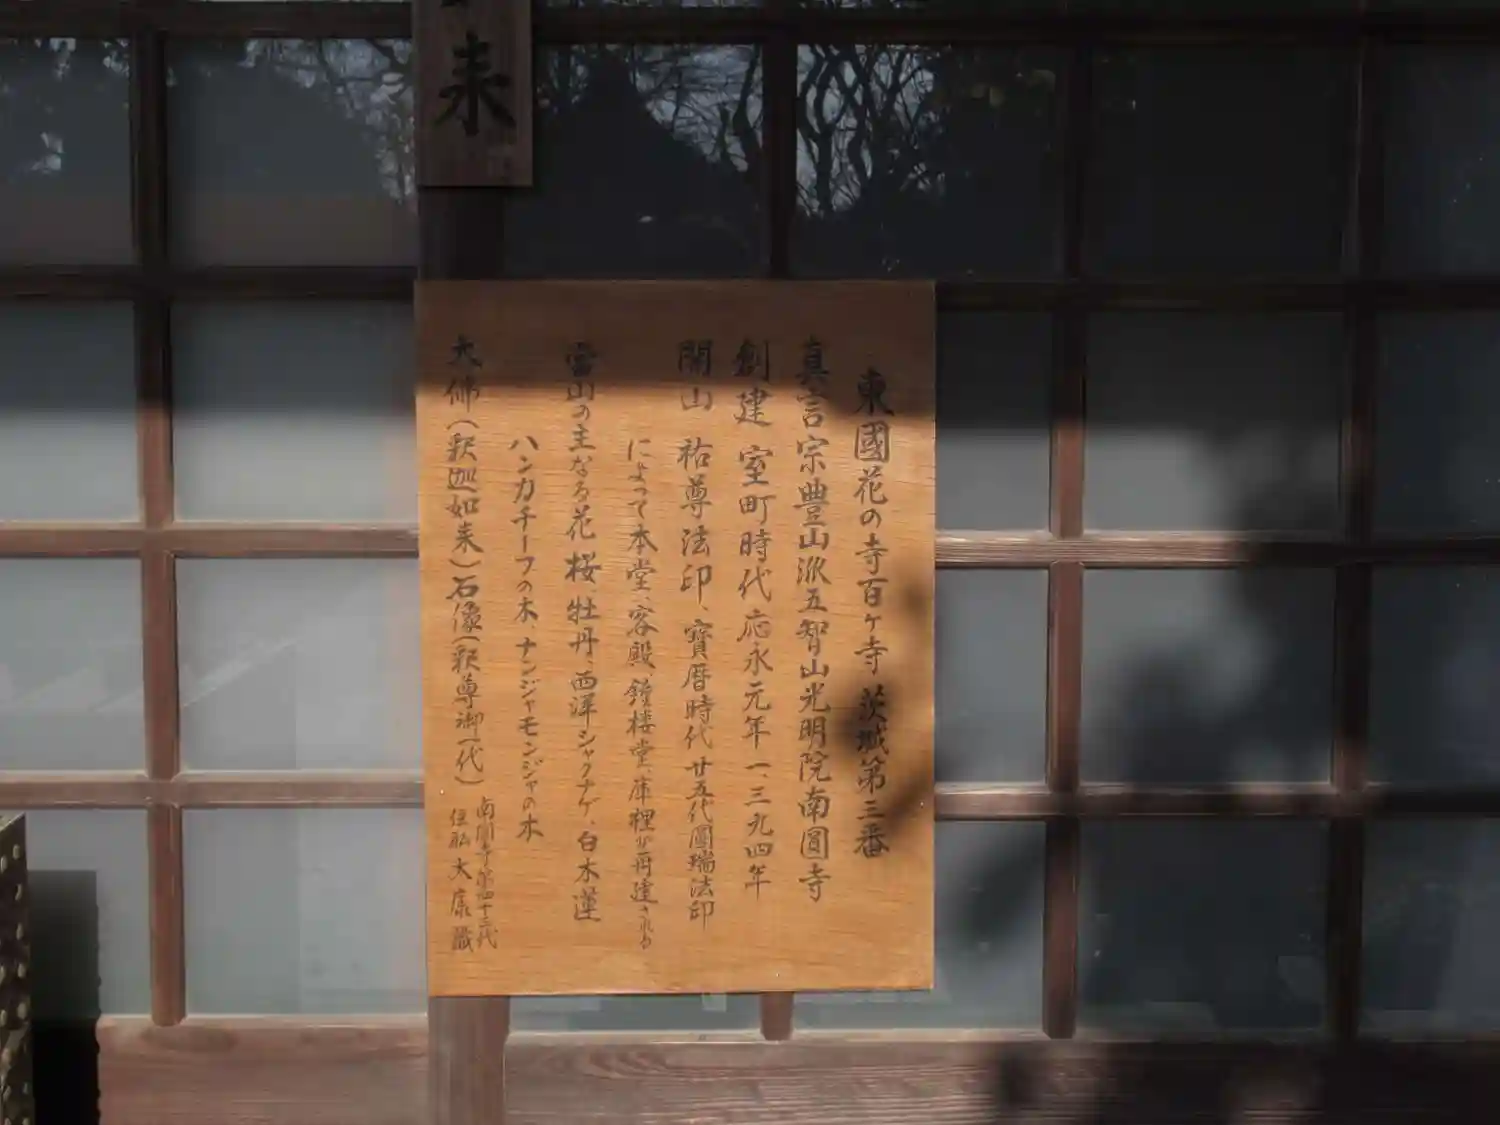 来
東國花の寺百ヶ寺 茨城第三番
真言宗豊山派五智山光明院南圓寺
創建 室町時代応永元年一、三九四年
開山 祐尊法印、寶暦時代廿五代圓瑞法印
によって本堂、客殿、鐘楼堂、庫裡が再建される
當山の主なる花 桜、牡丹、西洋シャクナゲ、白木蓮
ハンカチーフの木、ナンジャモンジャの木
大佛(釈迦如来)石像(釈尊御一代)
南圓寺第四十三代
住職 大康